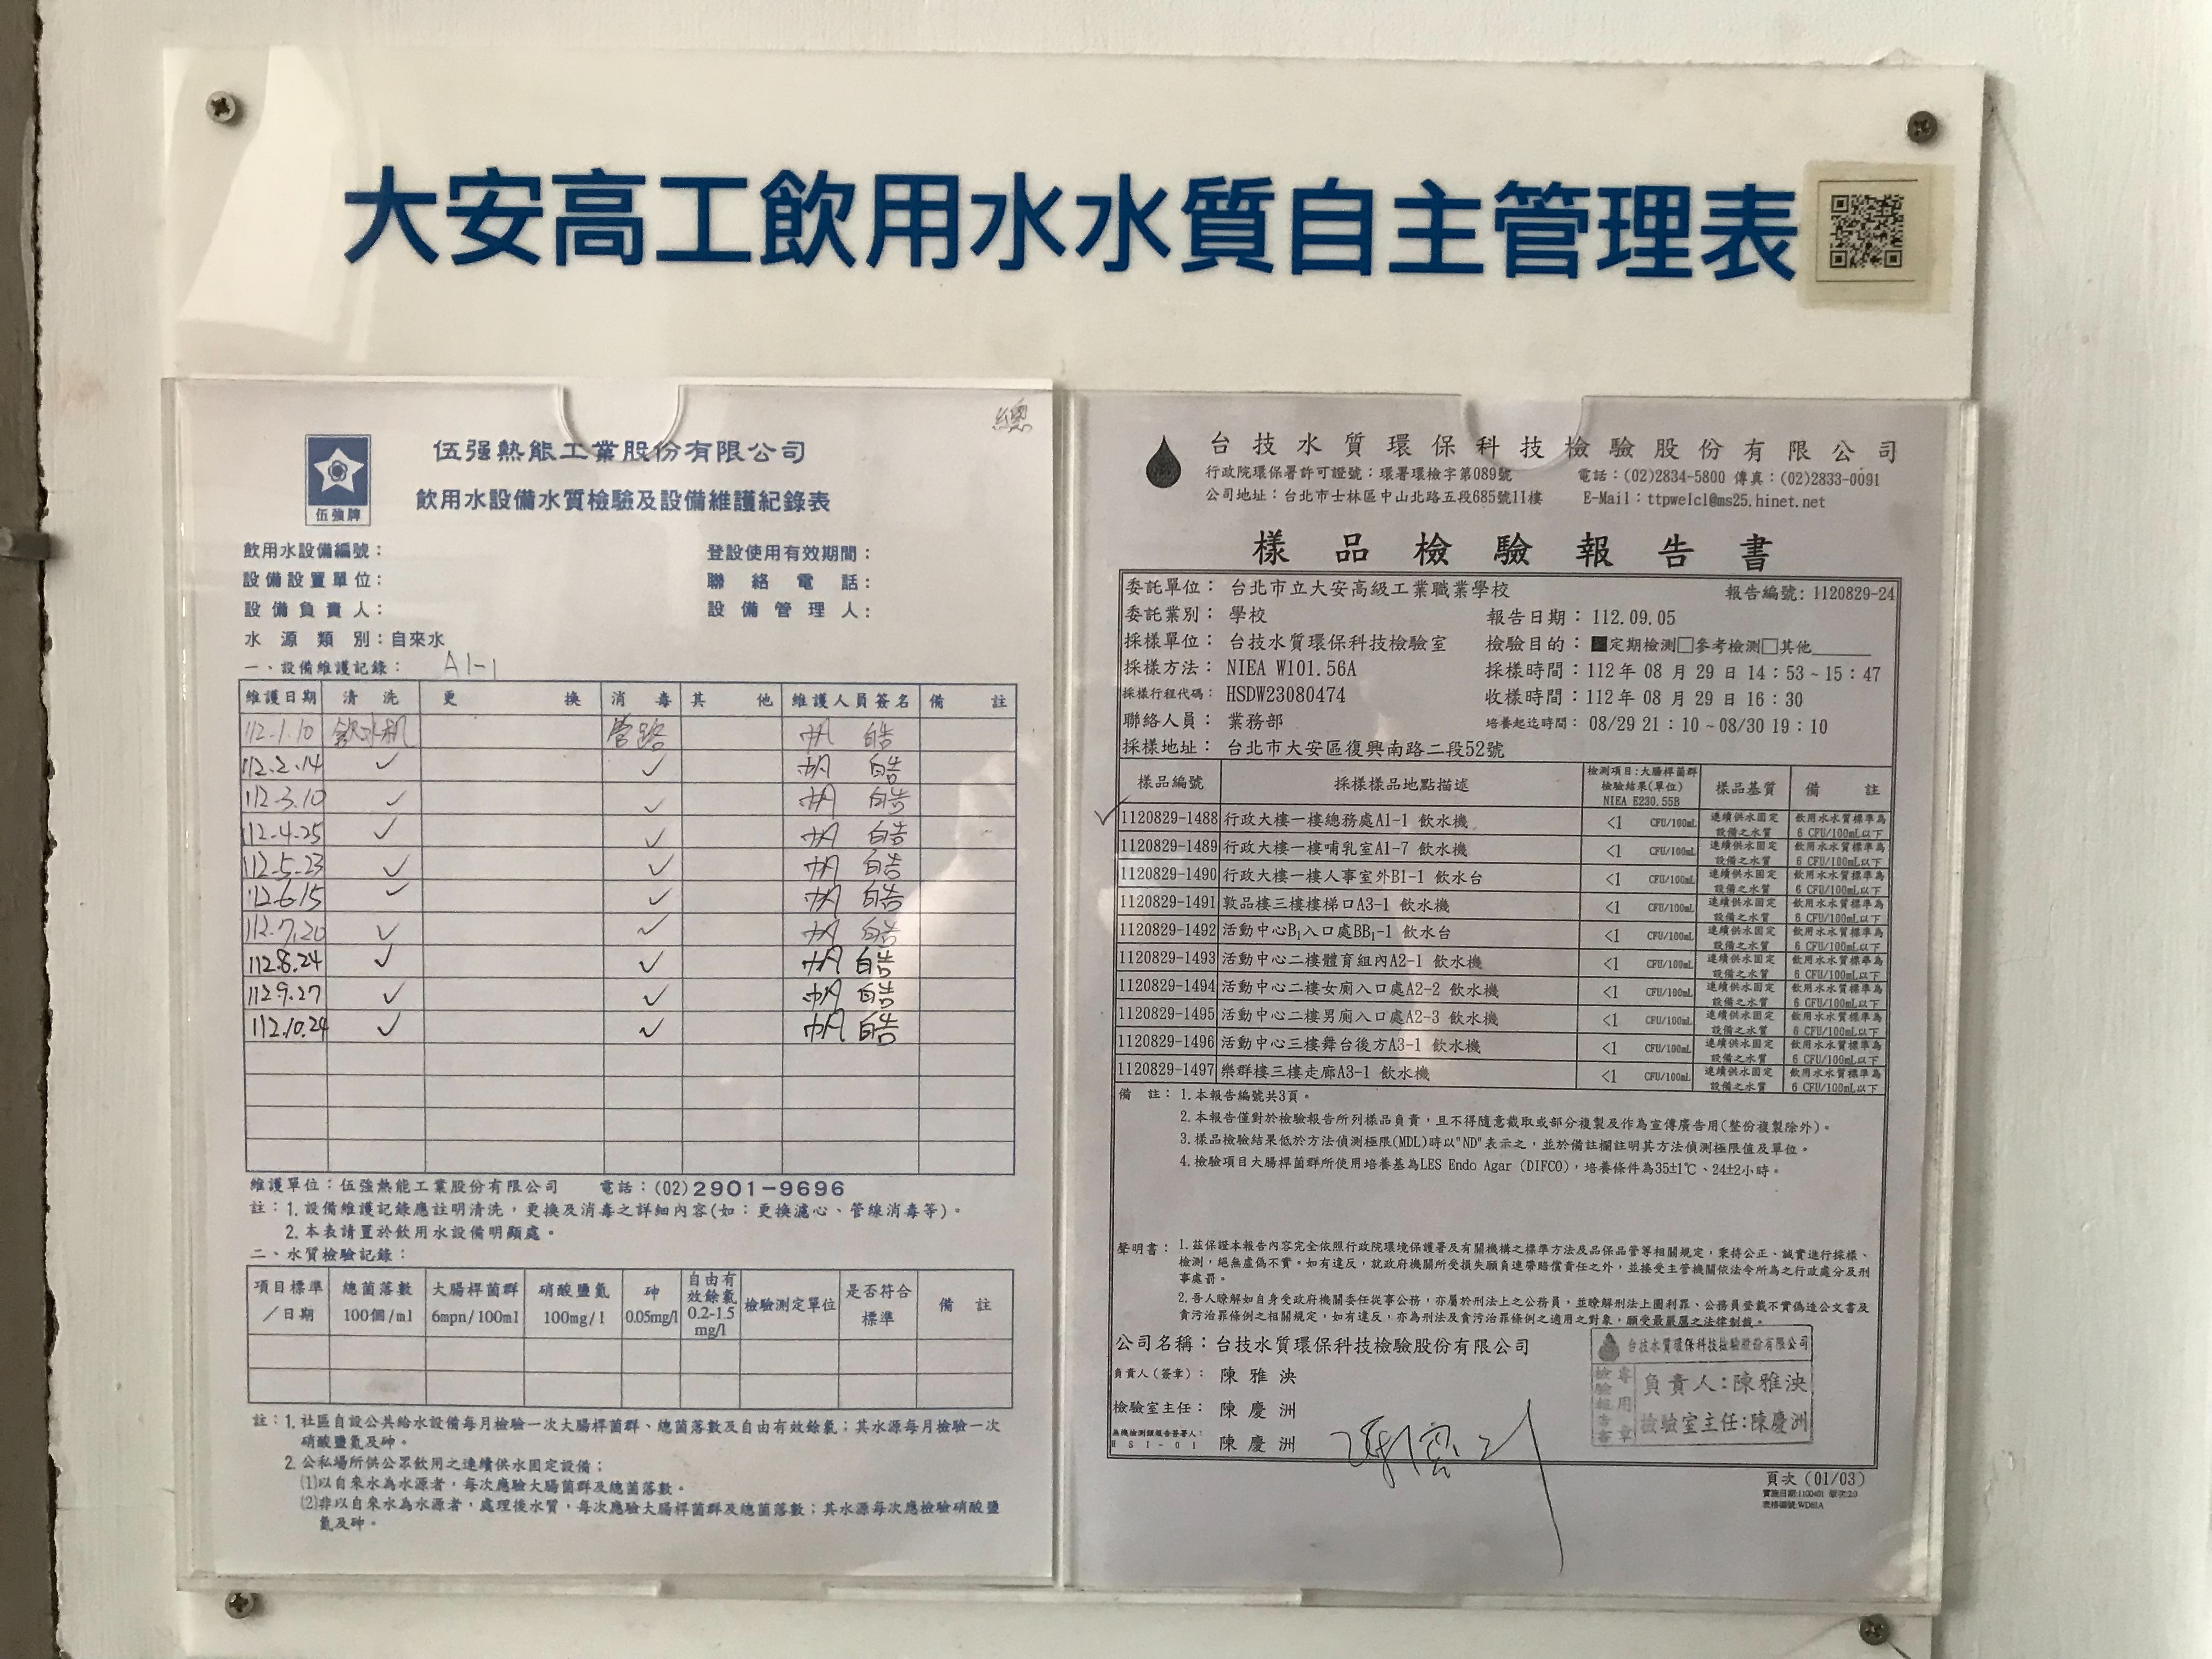 大安高工飲用水水質自主管理表
總
伍強牌
伍强熱能工業股份有限公司
飲用水設備水質檢驗及設備維護紀錄表
飲用水設備編號： 登設使用有效期間：
設備設置單位： 聯絡電話：
設備負責人： 設備管理人：
水源類別：自來水
一、設備維護記錄： A1-1
維護日期 清洗 更換 消毒 其他 維護人員簽名 備註
112.1.10 飲水机 管路
112.2.14 ✓ ✓
112.3.10 ✓ ✓
112.4.25 ✓ ✓
112.5.23 ✓ ✓
112.6.15 ✓ ✓
112.7.20 ✓ ✓
112.8.24 ✓ ✓
112.9.27 ✓ ✓
112.10.24 ✓ ✓
維護單位：伍強熱能工業股份有限公司 電話：(02)2901-9696
註：1.設備維護記錄應註明清洗，更換及消毒之詳細內容(如：更換濾心、管線消毒等)。
2.本表請置於飲用水設備明顯處。
二、水質檢驗記錄：
項目標準／日期 總菌落數100個/ml 大腸桿菌群6mpn/100ml 硝酸鹽氮100mg/l 砷0.05mg/l 自由有效餘氯0.2-1.5mg/l 檢驗測定單位 是否符合標準 備註
註：1.社區自設公共給水設備每月檢驗一次大腸桿菌群、總菌落數及自由有效餘氯；其水源每月檢驗一次
硝酸鹽氮及砷。
2.公私場所供公眾飲用之連續供水固定設備；
(1)以自來水為水源者，每次應驗大腸菌群及總菌落數。
(2)非以自來水為水源者，處理後水質，每次應驗大腸桿菌群及總菌落數；其水源每次應檢驗硝酸鹽
氮及砷。
台技水質環保科技檢驗股份有限公司
行政院環保署許可證號：環署環檢字第089號 電話：(02)2834-5800 傳真：(02)2833-0091
公司地址：台北市士林區中山北路五段685號11樓 E-Mail：ttpwelcl@ms25.hinet.net
樣品檢驗報告書
委託單位：台北市立大安高級工業職業學校 報告編號：1120829-24
委託業別：學校 報告日期：112.09.05
採樣單位：台技水質環保科技檢驗室 檢驗目的：■定期檢測□參考檢測□其他
採樣方法：NIEA W101.56A 採樣時間：112年08月29日14：53~15：47
採樣行程代碼：HSDW23080474 收樣時間：112年08月29日16：30
聯絡人員：業務部 培養起迄時間：08/29 21：10~08/30 19：10
採樣地址：台北市大安區復興南路二段52號
樣品編號 採樣樣品地點描述 檢測項目:大腸桿菌群 檢驗結果(單位) NIEA E230.55B 樣品基質 備註
✓ 1120829-1488 行政大樓一樓總務處A1-1 飲水機 <1 CFU/100mL 連續供水固定設備之水質 飲用水水質標準為6 CFU/100mL以下
1120829-1489 行政大樓一樓哺乳室A1-7 飲水機 <1 CFU/100mL 連續供水固定設備之水質 飲用水水質標準為6 CFU/100mL以下
1120829-1490 行政大樓一樓人事室外B1-1 飲水台 <1 CFU/100mL 連續供水固定設備之水質 飲用水水質標準為6 CFU/100mL以下
1120829-1491 敦品樓三樓樓梯口A3-1 飲水機 <1 CFU/100mL 連續供水固定設備之水質 飲用水水質標準為6 CFU/100mL以下
1120829-1492 活動中心B₁入口處BB₁-1 飲水台 <1 CFU/100mL 連續供水固定設備之水質 飲用水水質標準為6 CFU/100mL以下
1120829-1493 活動中心二樓體育組內A2-1 飲水機 <1 CFU/100mL 連續供水固定設備之水質 飲用水水質標準為6 CFU/100mL以下
1120829-1494 活動中心二樓女廁入口處A2-2 飲水機 <1 CFU/100mL 連續供水固定設備之水質 飲用水水質標準為6 CFU/100mL以下
1120829-1495 活動中心二樓男廁入口處A2-3 飲水機 <1 CFU/100mL 連續供水固定設備之水質 飲用水水質標準為6 CFU/100mL以下
1120829-1496 活動中心三樓舞台後方A3-1 飲水機 <1 CFU/100mL 連續供水固定設備之水質 飲用水水質標準為6 CFU/100mL以下
1120829-1497 樂群樓三樓走廊A3-1 飲水機 <1 CFU/100mL 連續供水固定設備之水質 飲用水水質標準為6 CFU/100mL以下
備註：1.本報告編號共3頁。
2.本報告僅對於檢驗報告所列樣品負責，且不得隨意截取或部分複製及作為宣傳廣告用(整份複製除外)。
3.樣品檢驗結果低於方法偵測極限(MDL)時以"ND"表示之，並於備註欄註明其方法偵測極限值及單位。
4.檢驗項目大腸桿菌群所使用培養基為LES Endo Agar (DIFCO)，培養條件為35±1℃、24±2小時。
聲明書：1.茲保證本報告內容完全依照行政院環境保護署及有關機構之標準方法及品保品管等相關規定，秉持公正、誠實進行採樣、
檢測，絕無虛偽不實。如有違反，就政府機關所受損失願負連帶賠償責任之外，並接受主管機關依法令所為之行政處分及刑
事處罰。
2.吾人瞭解如自身受政府機關委任從事公務，亦屬於刑法上之公務員，並瞭解刑法上圖利罪、公務員登載不實偽造公文書及
貪污治罪條例之相關規定，如有違反，亦為刑法及貪污治罪條例之適用之對象，願受最嚴厲之法律制裁。
公司名稱：台技水質環保科技檢驗股份有限公司
負責人(簽章)：陳雅泱
檢驗室主任：陳慶洲
無機檢測類報告簽署人：陳慶洲
HSI-01
台技水質環保科技檢驗股份有限公司
檢驗報告書專用章
負責人:陳雅泱
檢驗室主任:陳慶洲
頁次(01/03)
實施日期:1100401 版次:2.0
表格編號:WD61A